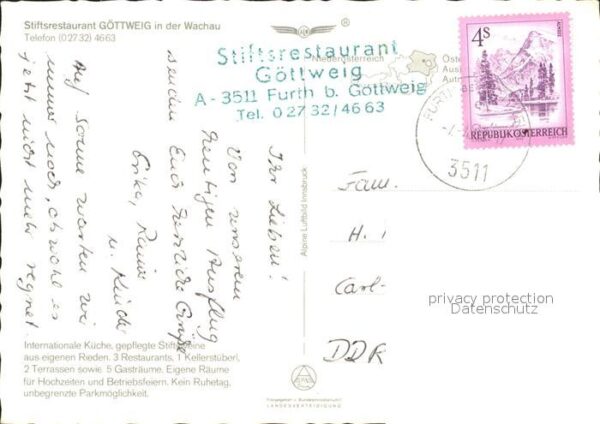 Stiftsrestaurant GÖTTWEIG in der Wachau
Telefon (0 27 32) 46 63
Niederösterreich
Stiftsrestaurant
Göttweig
A - 3511 Furth b. Göttweig
Tel. 0 27 32 / 46 63
4S
REPUBLIK ÖSTERREICH
3511
Ihr Lieben!
Von unserem
heutigen Ausflug
senden Euch herzliche Grüße
Erika, Rainer
u. Kinder
Auf Sonne warten wir
immer noch, obwohl es
jetzt nicht mehr regnet
Alpine Luftbild Innsbruck
Fam.
H.
Carl-
DDR
privacy protection
Datenschutz
Internationale Küche, gepflegte Stiftsweine
aus eigenen Rieden. 3 Restaurants, 1 Kellerstüberl,
2 Terrassen sowie 5 Gasträume. Eigene Räume
für Hochzeiten und Betriebsfeiern. Kein Ruhetag,
unbegrenzte Parkmöglichkeit.
LANDESVERTEIDIGUNG